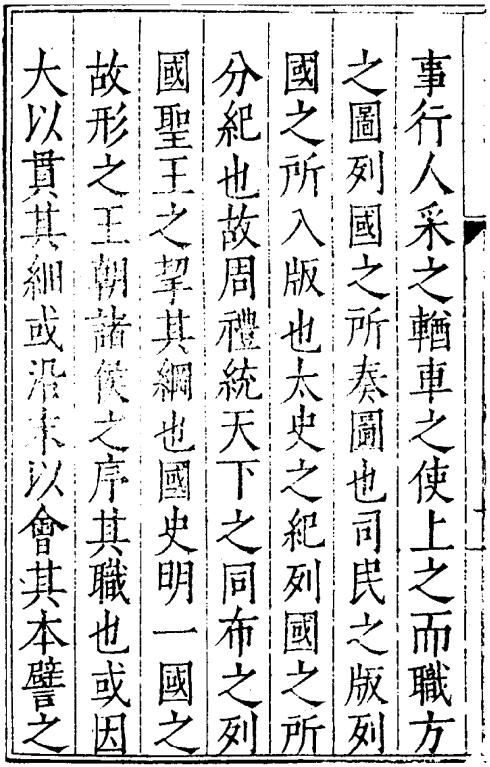 事行人采之輶車之使上之而職方
之圖列國之所奏圖也司民之版列
國之所入版也太史之紀列國之所
分紀也故周禮統天下之同布之列
國聖王之挈其綱也國史明一國之
故形之王朝諸侯之序其職也或因
大以貫其細或沿末以會其本譬之